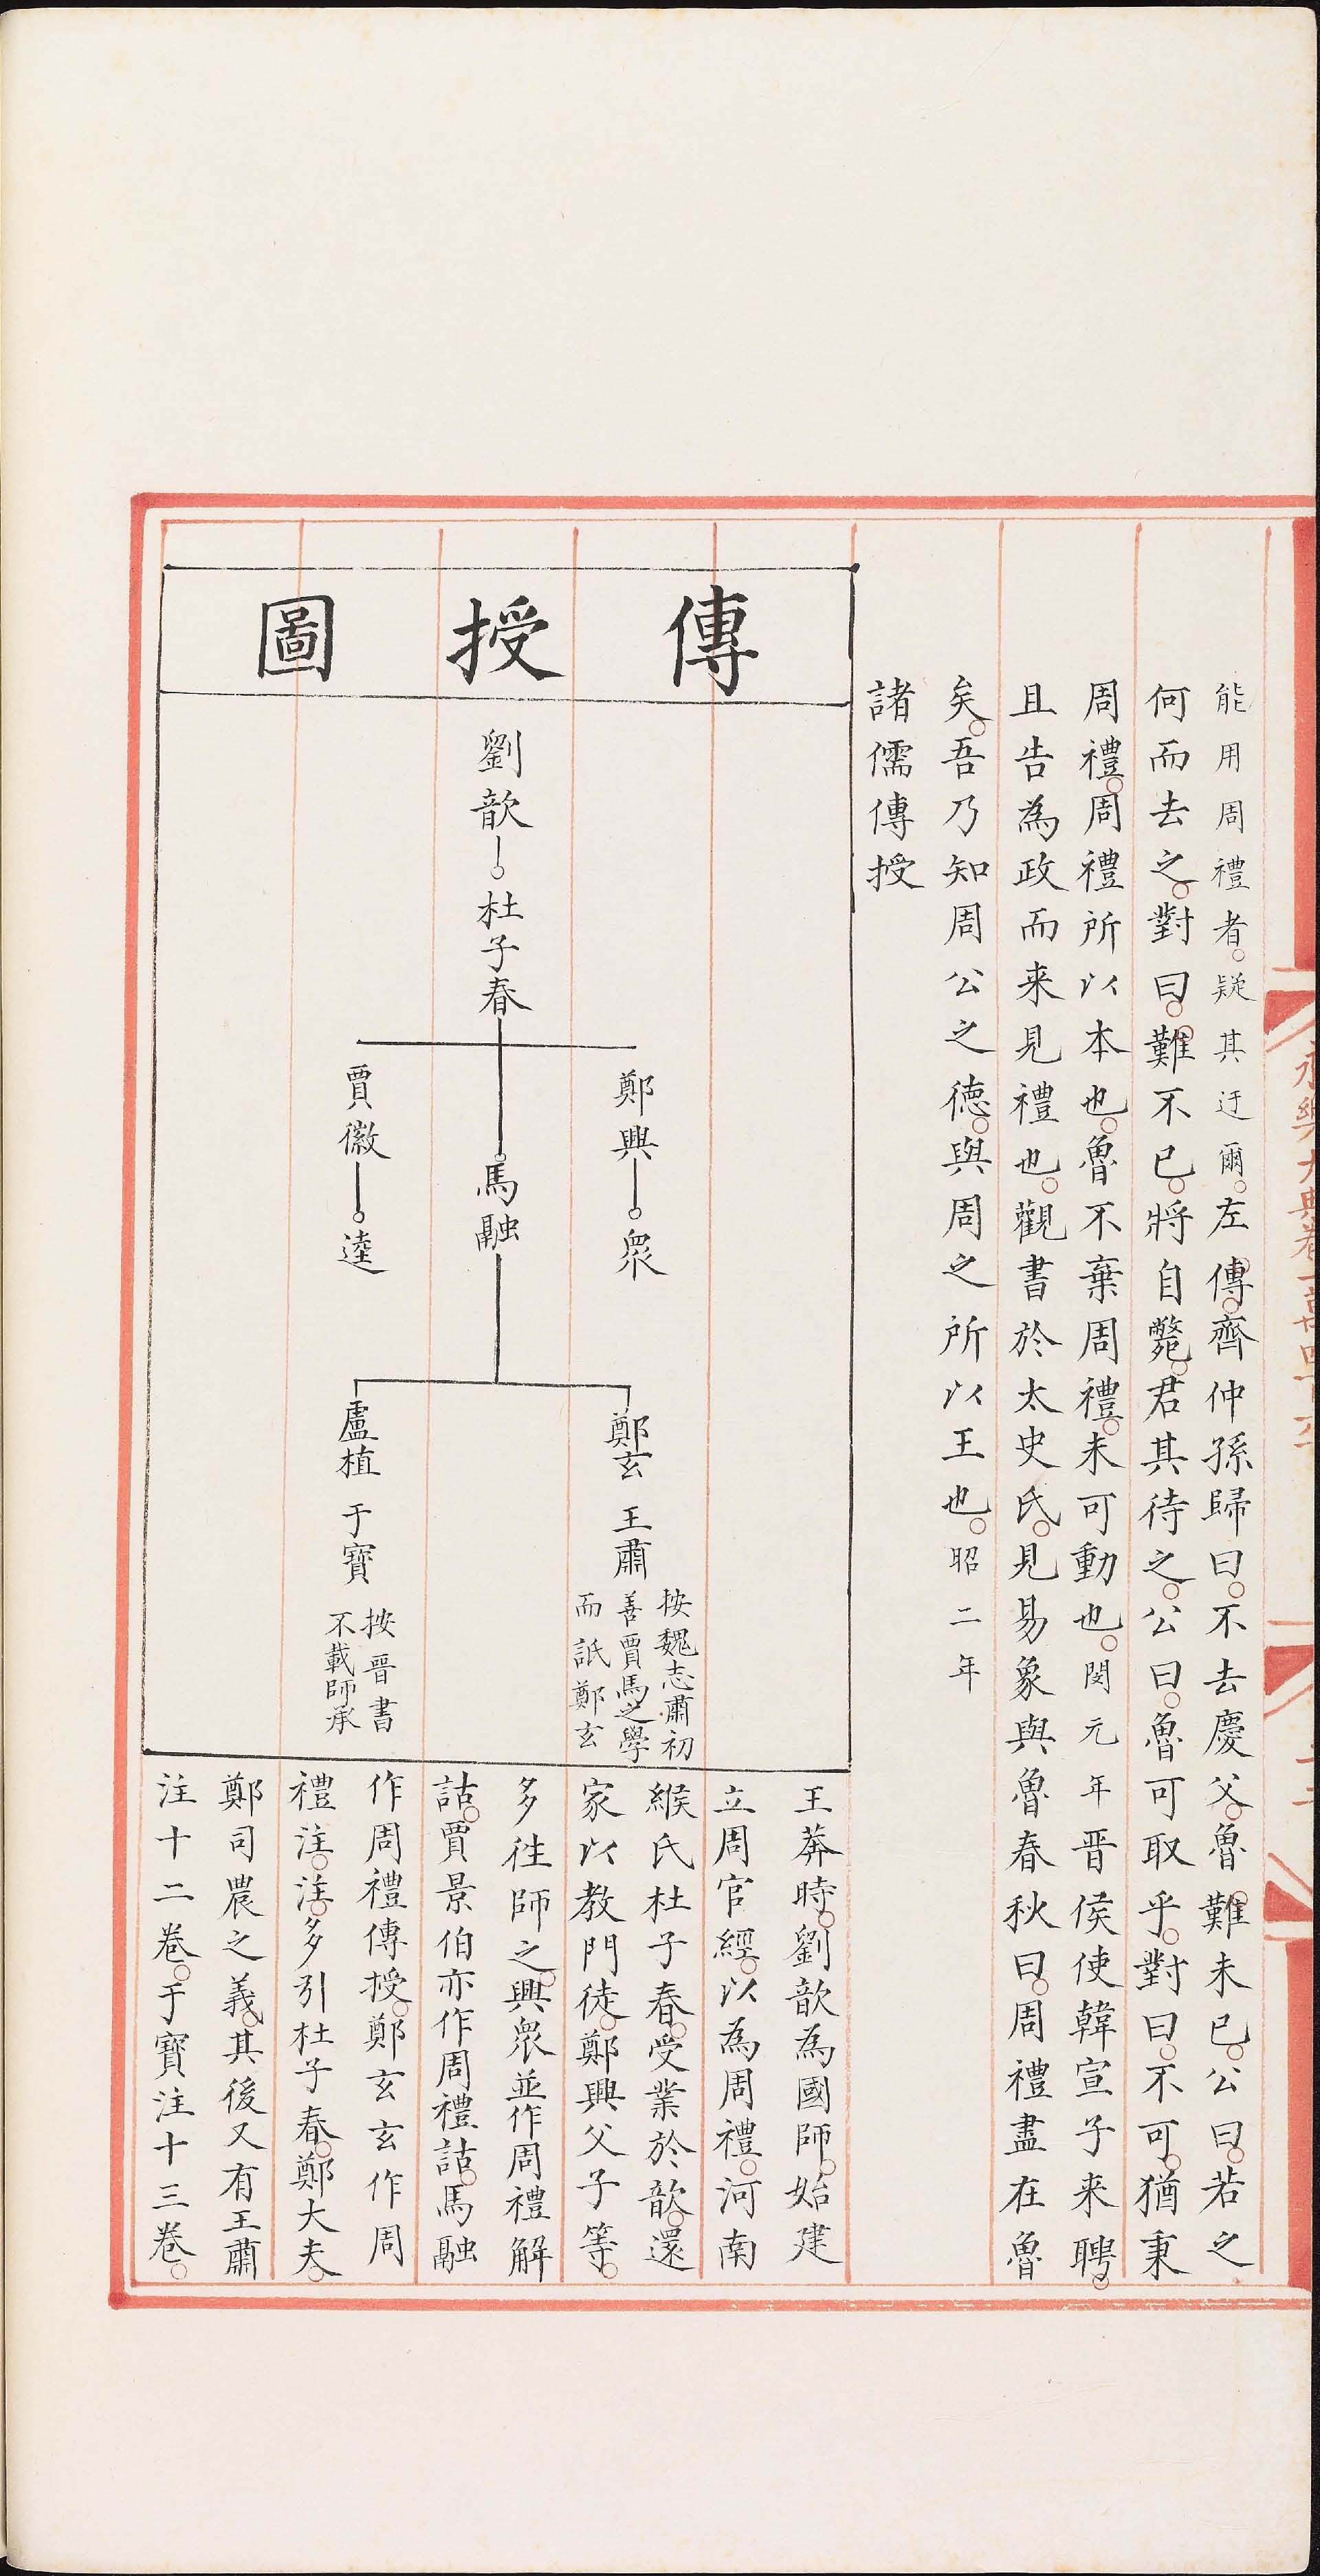 能用周禮者。疑其迂爾。左傳。齊仲孫歸曰。不去慶父。魯難未已。公曰。若之
何而去之。對曰。難不已。將自斃。君其待之。公曰。魯可取乎。對曰。不可。猶秉
周禮。周禮所以本也。魯不棄周禮。未可動也。閔元年晋侯使韓宣子来聘。
且告為政而来見禮也。觀書於太史氏。見易象與魯春秋曰。周禮盡在魯
矣。吾乃知周公之德。與周之所以王也。昭二年
諸儒傳授
傳授圖
劉歆
杜子春
鄭興
衆
馬融
賈徽
逵
鄭玄
王肅
按魏志肅初
善賈馬之學
而詆鄭玄
盧植
于寶
按晋書
不載師承
王莽時。劉歆為國師。始建
立周官經。以為周禮。河南
緱氏杜子春。受業於歆。還
家以教門徒。鄭興父子等。
多徃師之。興衆並作周禮解
詁。賈景伯亦作周禮詁。馬融
作周禮傳授。鄭玄玄作周
禮注。注。多引杜子春。鄭大夫。
鄭司農之義。其後又有王肅
注十二卷。于寶注十三卷。